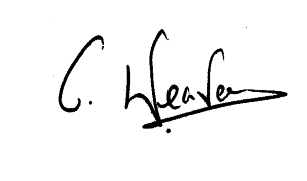 C. Weaver